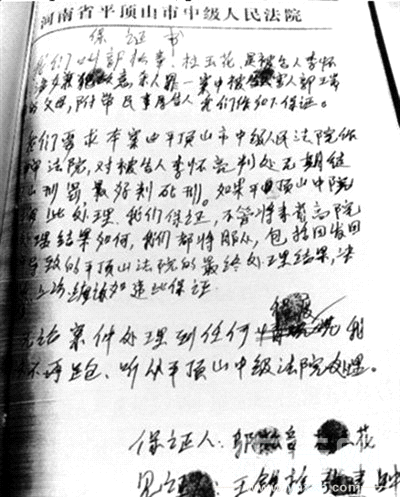 河南省平顶山市中级人民法院
保证书
我们叫郭松章!杜玉花,是被告人李怀
亮故意杀人罪一案中被害人郭
的父母,附带民事原告人我们作如下保证。
我们要求本案由平顶山市中级人民法院作
法院,对被告人李怀亮判处无期徒
刑罚,最好判死刑。如果平顶山中院
此处理,我们保证,不管将来省高院
处理结果如何,我们都将服从,包括回发回
导致的平顶山法院的最终处理结果,决
上访,如违此保证
无论案件处理到任何程度 我
不再 听从平顶山中级法院处理。
保证人:郭松章 花
见证:王